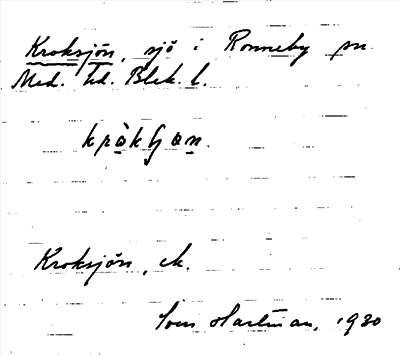 Kroksjön, sjö i Ronneby sn
Med. hd. Blek. l.
Kroksjön, ek.
Sven Hartman, 1930